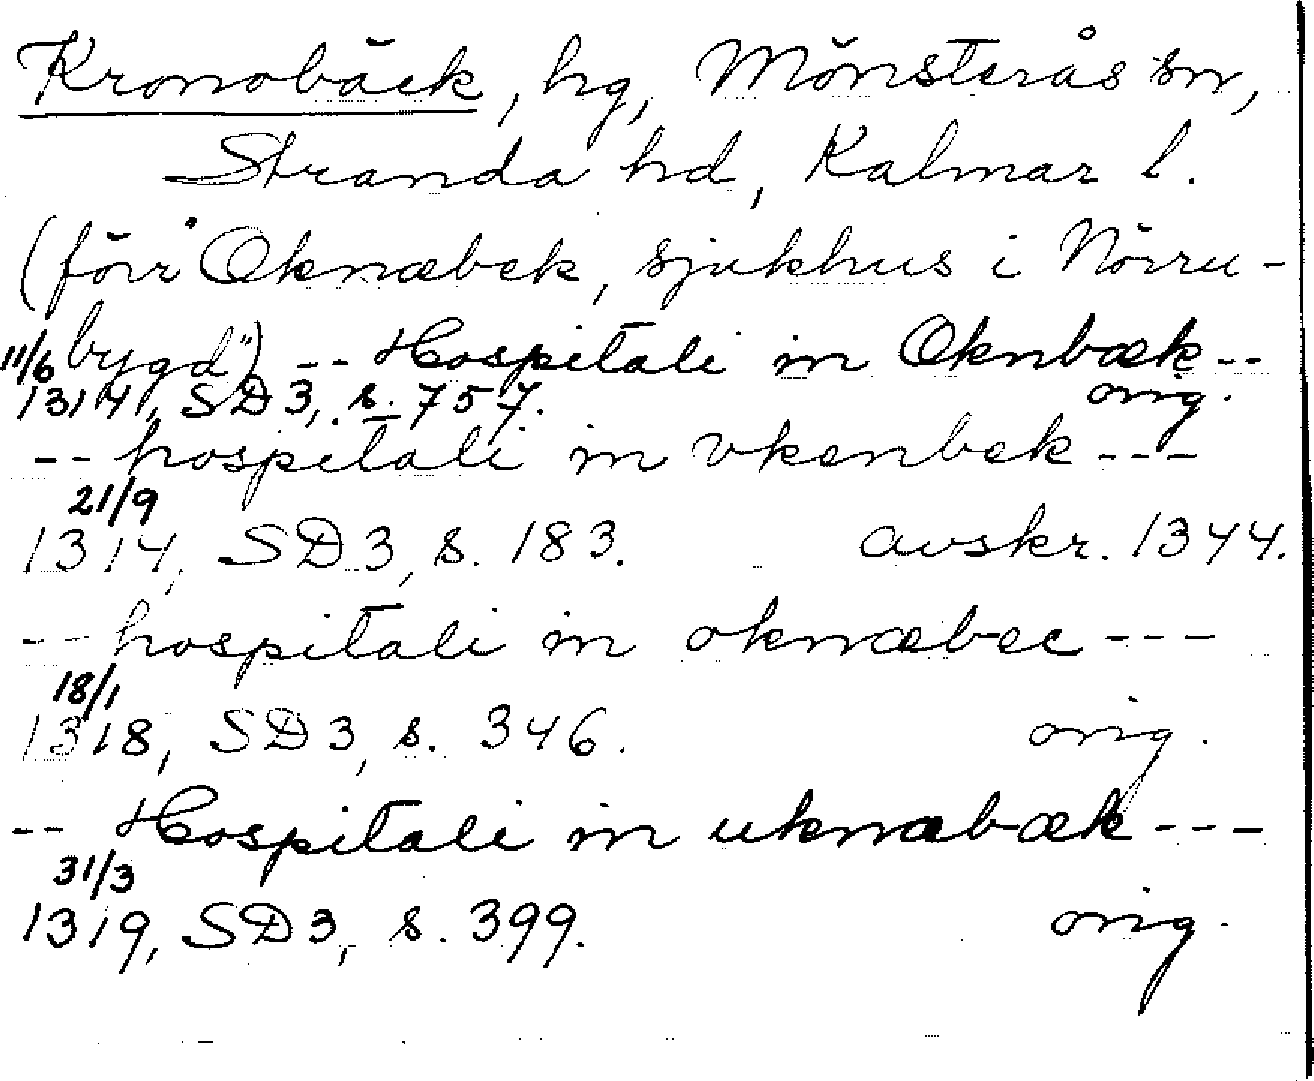 Kronobäck, hg, Mönsterås sn,
Stranda hd, Kalmar l.
(förr "Oknæbek, sjukhus i Norru-
bygd") -- Hospitali in Oknbæk --
11/6
1314, SD 3, s. 757. orig.
-- hospitali in vkenbek ---
21/9
1314, SD 3, s. 183. avskr. 1344.
-- hospitali in oknæbec ---
18/1
1318, SD 3, s. 346. orig.
-- Hospitali in uknæbæk ---
31/3
1319, SD 3, s. 399. orig.